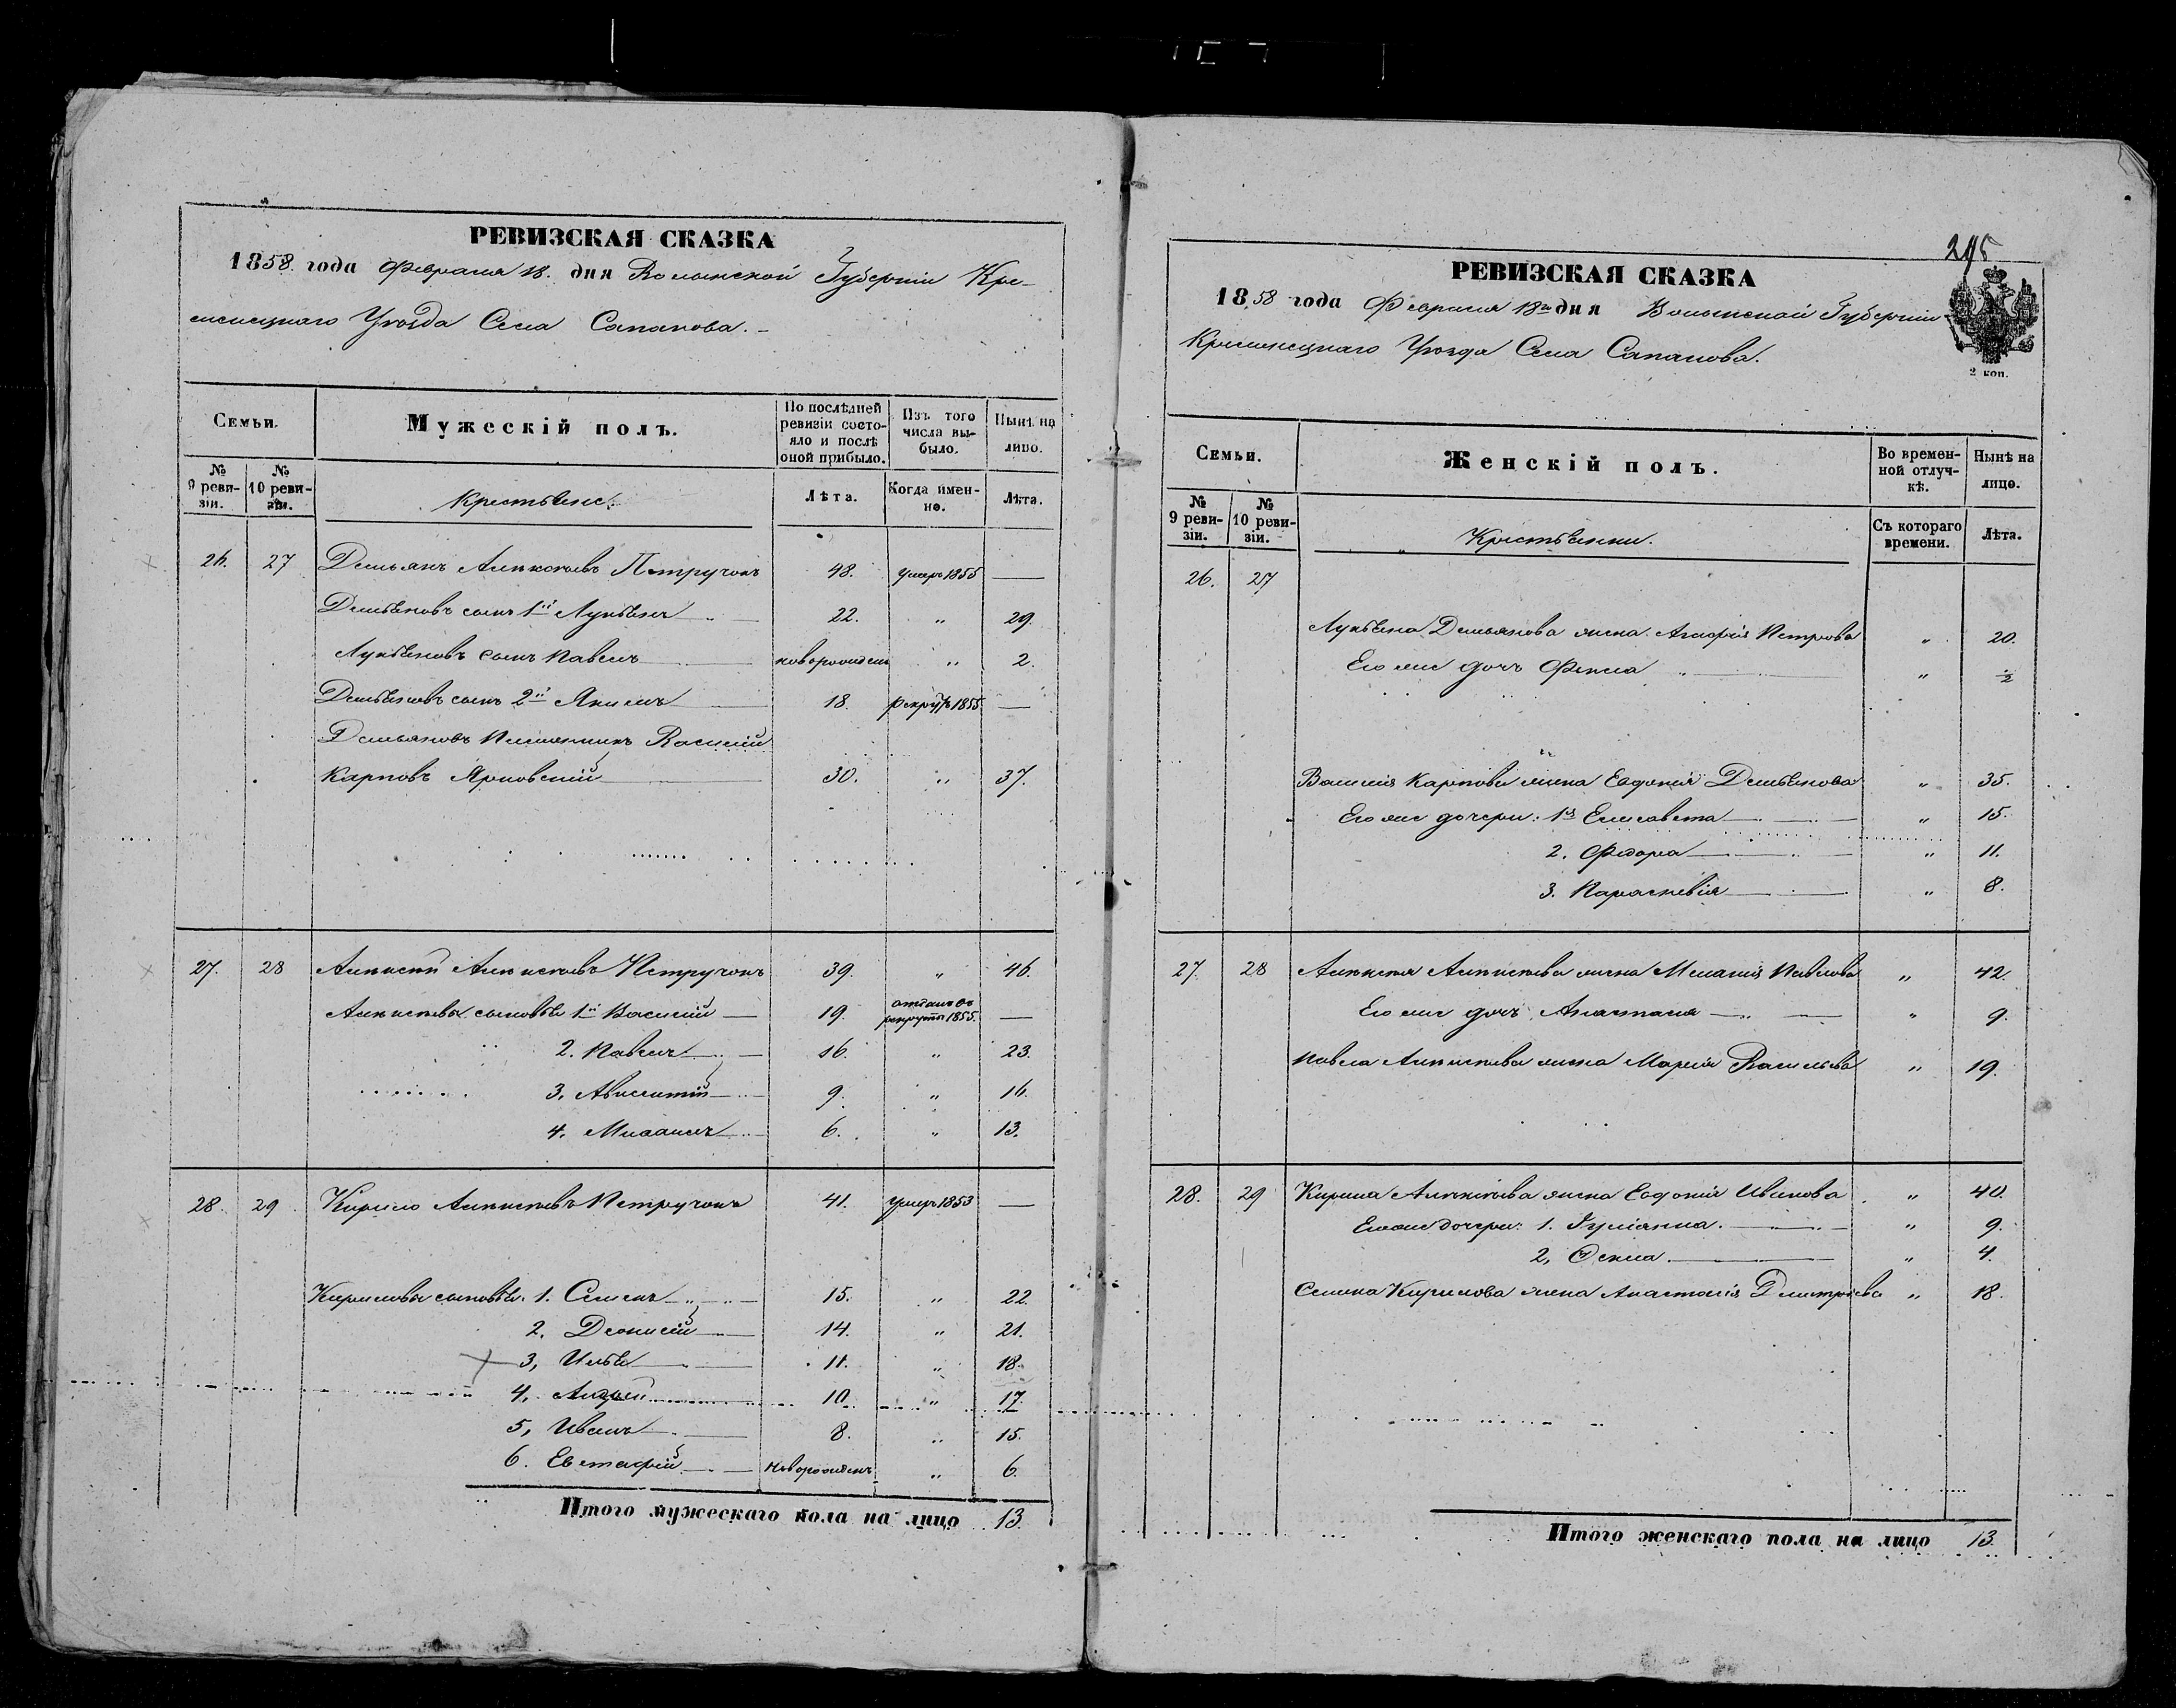 РЕВИЗСКАЯ СКАЗКА
1858. года Февраля 18. дня Волынской Губерніи Кре-
менецкаго Уѣзда Села Сапанова.
Семьи.
Мужескій полъ.
По послѣдней ревизіи состо-яло и послѣ оной прибыло.
Изъ того числа вы-было.
Нынѣ на лицо.
№ 9 реви-зіи.
№ 10 реви-зіи.
Крестьяне:
Лѣта.
Когда имен-но.
Лѣта.
26. 27 Демьянъ Алексѣевъ Петручокъ 48. умеръ 1855 —
Демьяновъ сынъ 1й Лукьянъ 22. " 29.
Лукьяновъ сынъ Павелъ новорожденъ " 2.
Демьяновъ сынъ 2й Якимъ 18. рекрутъ 1855 —
Демьяновъ племянникъ Василій
Карповъ 30. " 37.
27. 28 Алексѣй Алексѣевъ Петручокъ 39. " 46.
Алексѣевы сыновья 1й Василій 19. отданъ въ рекруты 1855. —
2. Павелъ 16. " 23.
3, 9. " 16.
4. 6. " 13.
28. 29 Кирило Алексѣевъ Петручокъ 41. умеръ 1853 —
Кириловы сыновья: 1. Семенъ 15. " 22.
2. Деонисій 14. " 21.
3, Илья 11. " 18.
4, Андрей 10. " 17.
5, Иванъ 8. " 15.
6. Евстафій новорожденъ " 6.
Итого мужескаго пола на лицо 13.
РЕВИЗСКАЯ СКАЗКА
1858 года Февраля 18го дня Волынской Губерніи
Кременецкаго Уѣзда Села Сапанова.
2 коп.
Семьи.
Женскій полъ.
Во времен-ной отлуч-кѣ.
Нынѣ на лицо.
№ 9 реви-зіи.
№ 10 реви-зіи.
Крестьянки.
Съ котораго времени.
Лѣта.
26. 27
Лукьяна Демьянова жена Петрова " 20.
Его же дочь Фекла " ½
Василія Карпова жена Евдокія Демьянова " 35.
Его же дочери: 1я Елисавета " 15.
2. Федора " 11.
3. Параскевія " 8.
27. 28 Алексѣя Алексѣева жена Меланія Павлова " 42.
Его же дочь Анастасія " 9.
Павла Алексѣева жена Марія Васильева " 19.
28. 29 Кирила Алексѣева жена Евдокія Иванова " 40.
Его же дочери: 1. Іуліанна. " 9.
2, Ѳекла. " 4.
Семена Кирилова жена Анастасія Дмитріева " 18.
Итого женскаго пола на лицо 13.